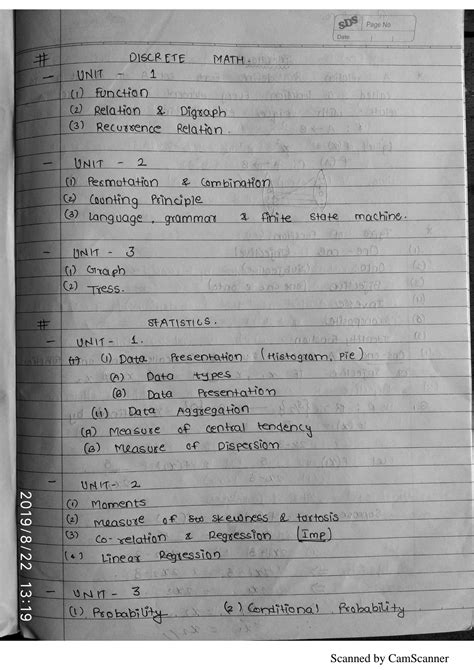 SDS Page No
Date
# DISCRETE MATH.
- UNIT - 1
(1) Function
(2) Relation & Digraph
(3) Recurrence Relation.
- UNIT - 2
(1) Permutation & Combination
(2) Counting Principle
(3) Language, grammar & finite state machine.
- UNIT - 3
(1) Graph
(2) Tress.
# STATISTICS.
- UNIT - 1.
(I) Data Presentation (Histogram, Pie)
(A) Data types
(B) Data Presentation
(II) Data Aggregation
(A) Measure of central tendency
(B) Measure of Dispersion
- UNIT - 2
(1) Moments
(2) Measure of skewness & tortosis
(3) Co-relation & Regression (Imp)
(4) Linear Regression
- UNIT - 3
(1) Probability (2) Conditional Probability
2019/8/22 13:19
Scanned by CamScanner